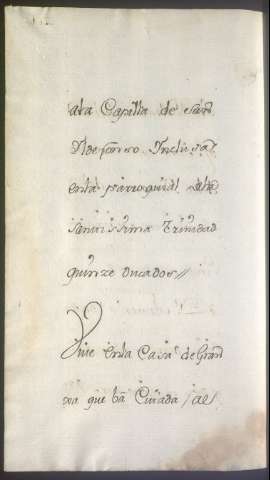 ala Capilla de san
Ildefonso Inclusa
enla parroquial dela
santissima Trinidad
quinze ducados//
Vive enla Casa de Gran
xa que ba Cuiada